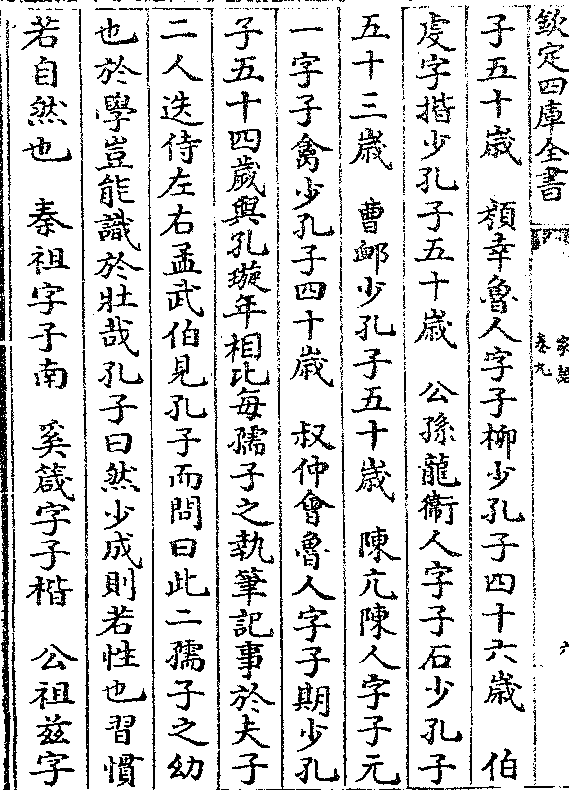 欽定四庫全書
家語
卷九
六
子五十歲　顏幸魯人字子柳少孔子四十六歲　伯
虔字揩少孔子五十歲　公孫龍衛人字子石少孔子
五十三歲　曹卹少孔子五十歲　陳亢陳人字子元
一字子禽少孔子四十歲　叔仲會魯人字子期少孔
子五十四歲與孔璇年相比每孺子之執筆記事於夫子
二人迭侍左右孟武伯見孔子而問曰此二孺子之幼
也於學豈能識於壯哉孔子曰然少成則若性也習慣
若自然也　秦祖字子南　奚箴字子楷　公祖茲字